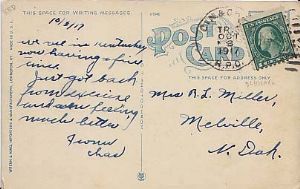 THIS SPACE FOR WRITING MESSAGES
10/2/17
we are in Kentucky
now having a first
time
Just got back
from exercise
and am feeling
much better
from
Chas
POST
CARD
THIS SPACE FOR ADDRESS ONLY
Mrs R.L. Miller,
Melville,
N. Dak.
TR
OCT
R.P.O.